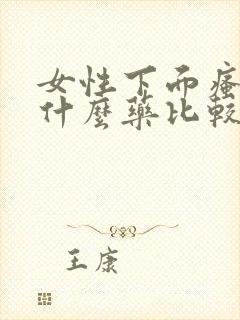 女性下而瘙
什麼藥比較
王康